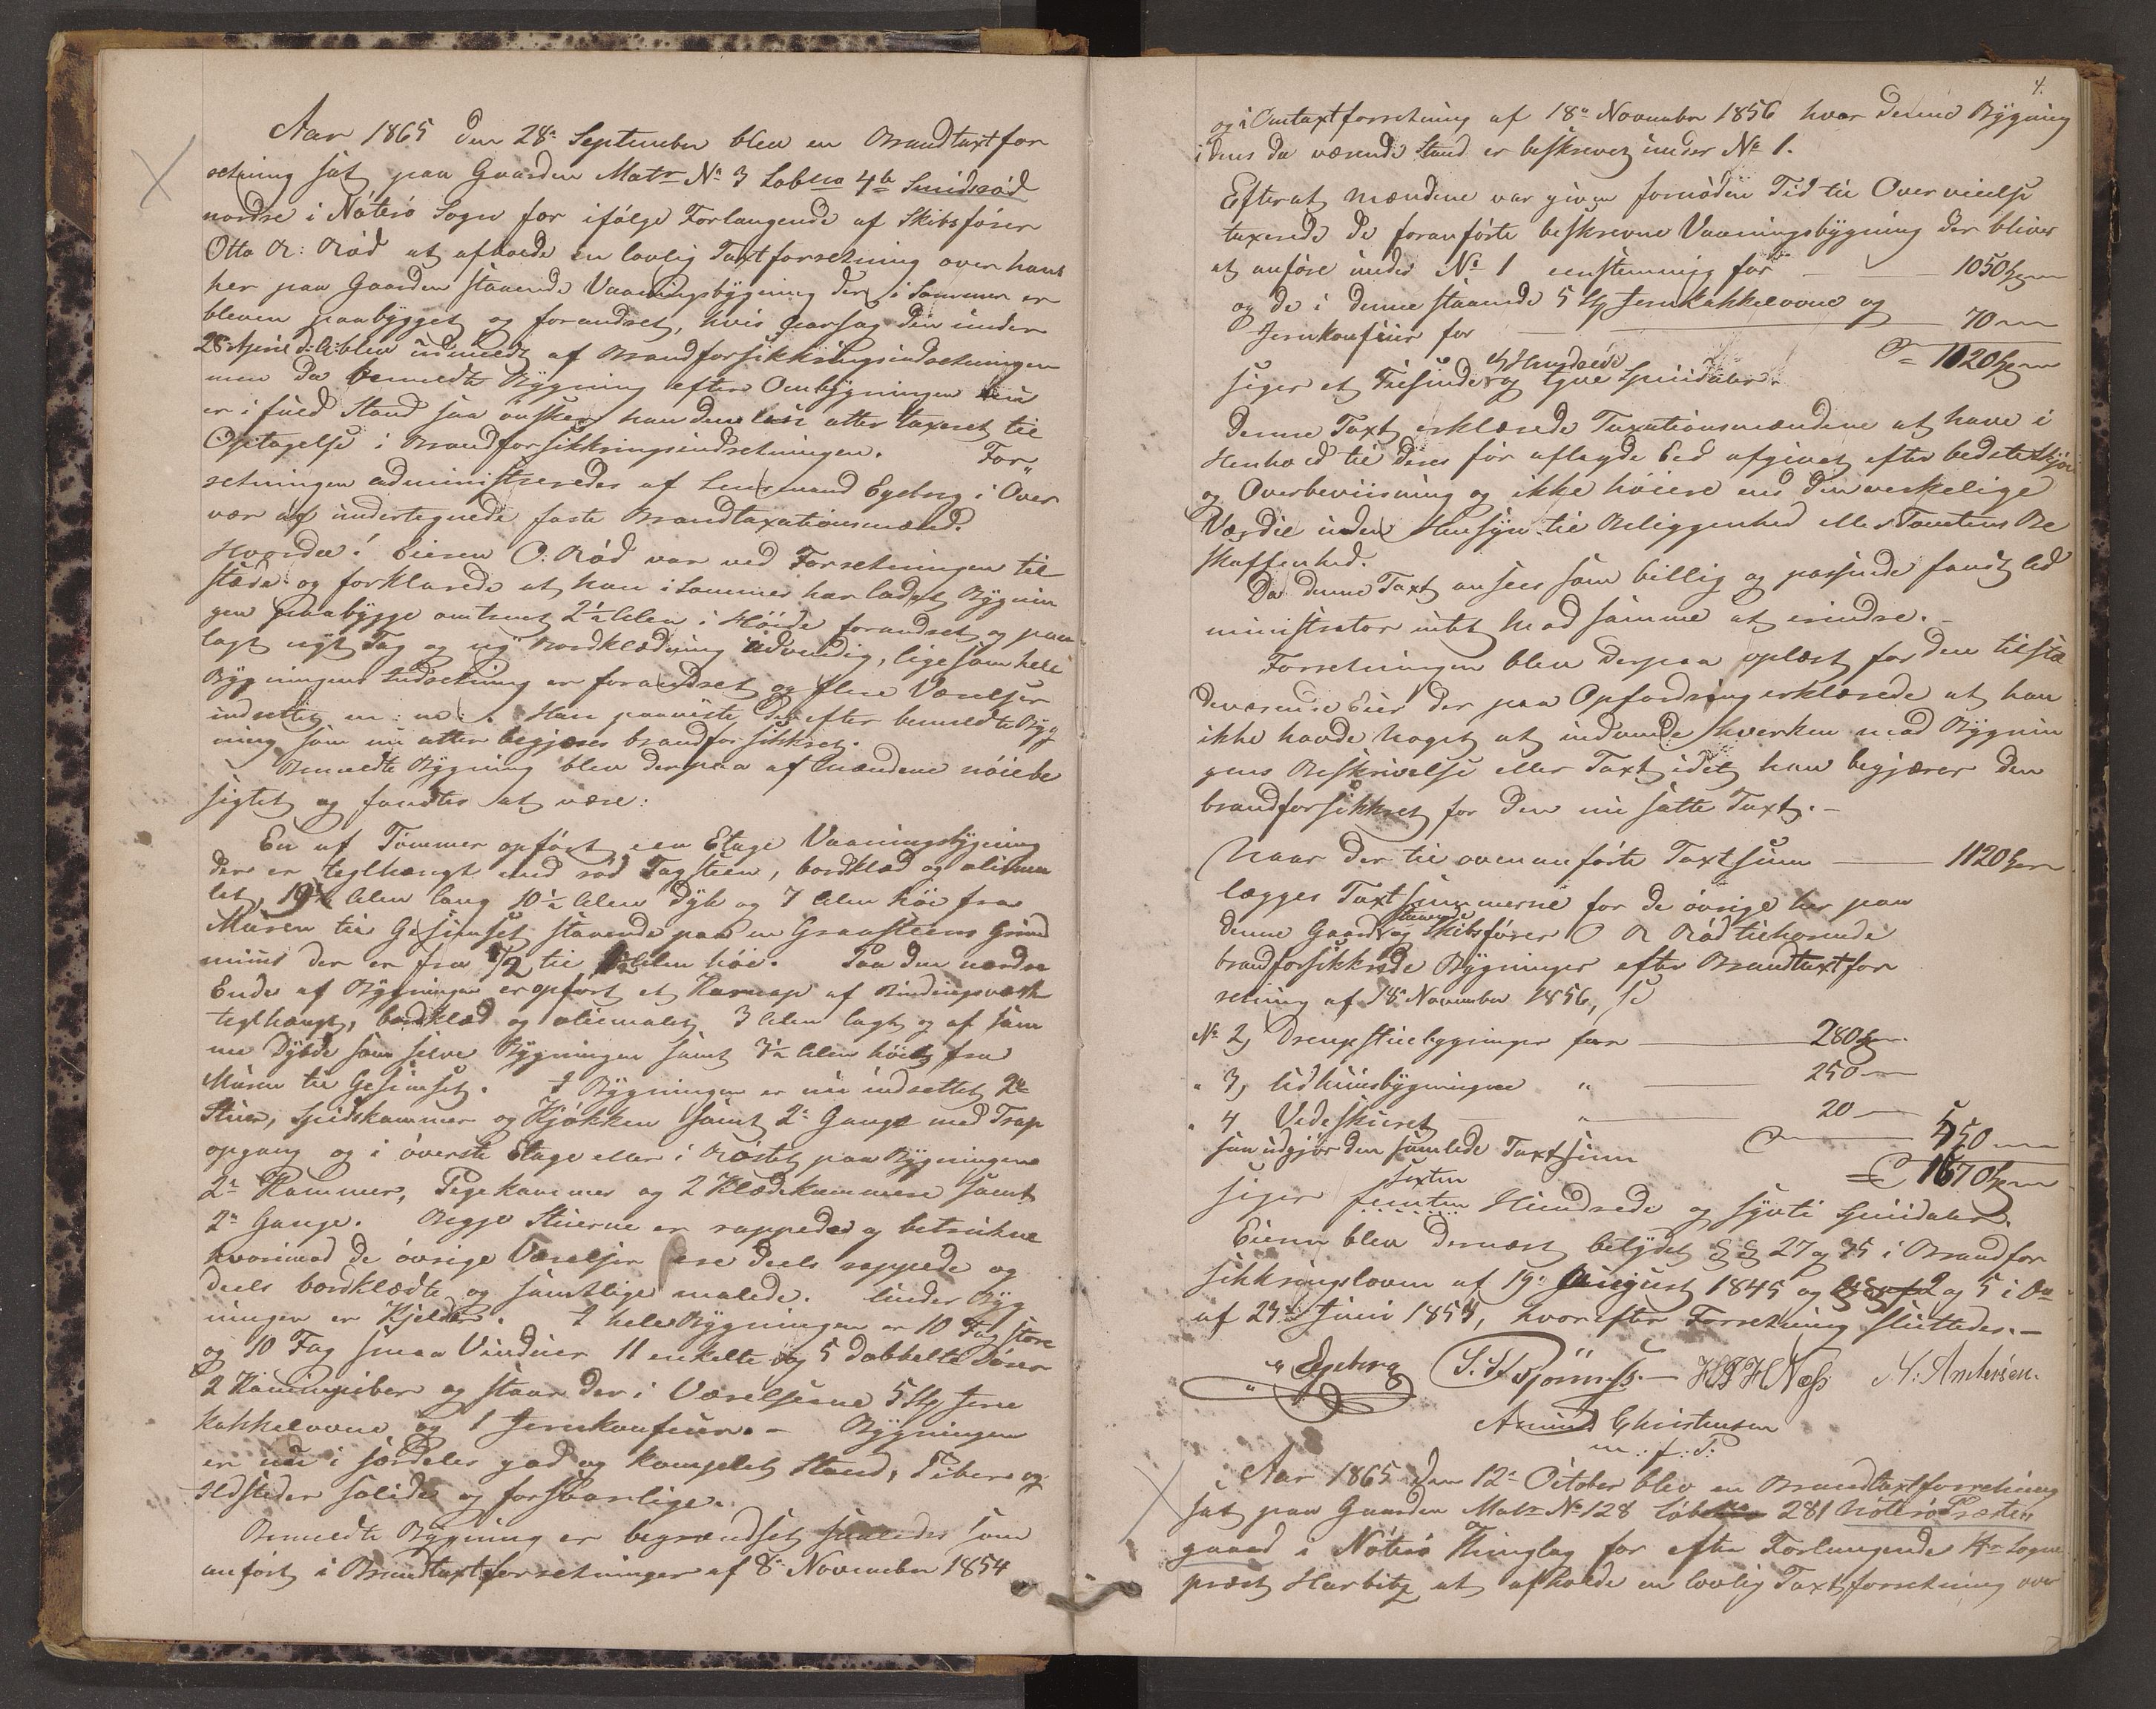 Aar 1865 den 28de September blev en Brandtaxtfor
retning sat paa Gaarden Matr No 3 Løbno 4b Smidsrød
nordre i Nøterø Sogn for ifølge Forlangende af Skibsfører
Otto R: Rød at afholde en lovlig Taxtforretning over hans
her paa Gaarden staaende Vaaningsbygning der i Sommer er
bleven paabygget og forandret, hvis Aarsag den under
28de April d: A: blev udmeldt af Brandforsikkringsindretningen
men da bemeldte Bygning efter Ombygningen nu
er i fuld Stand saa ønsker han den atter taxeret til
Optagelse i Brandforsikkringsindretningen. For„
retningen administreredes af Lensmand Egeberg i Over
vær af undertegnede faste Brandtaxationsmænd.
Hvorda! Eieren O: Rød var ved Forretningen til
stæde og forklarede at han i Sommer har ladet Bygnin
gen paabygge omtrent 2½ Alen i Høide forandret og paa
lagt nyt Tag og ny Bordklædning udvendig, ligesom hele
Bygningens Indretning er forandret og flere Værelser
indsattet m: m: . Han paaviste derefter bemeldte Byg
ning som nu atter begjæres brandforsikkret.
Bemeldte Bygning blev derpaa af Mændene nøie be
sigtet og fandtes at være:
En af Tømmer opført een Etage Vaaningsbygning
der er teglhængt med rød Tagsteen, bordklæd og oliema
let, 19½ Alen lang 10½ Alen dyb og 7 Alen høi fra
Muren til Gesimset staaende paa en Graasteens Grund
muur der er fra ½ til Alen høi. Paa den nordre
Ende af Bygningen er opført et Karnap af Bindingsværk
teglhængt, bordklæd og oliemalet 3 Alen langt og af sam
me Dybde som selve Bygningen samt 3½ Alen høit fra
Muren til Gesimset. I Bygningen er nu indsattet 2de
Stuer, Spiskammer og Kjøkken samt 2de Gange med Trap
opgang og i øverste Etage eller i Røstet paa Bygningen
2de Kammer, Pigekammer og 2 Klædekammere samt
2de Gange. Begge Stuerne er rappede og betrukne
hvorimod de øvrige Værelser ere deels rappede og
deels bordklædte og samtlige malede. Under Byg
ningen er Kjelder. I hele Bygningen er 10 Fag store
og 10 Fag smaa Vinduer 11 enkelte og 5 dobbelte Døre
2 Kaminpiber og staar der i Værelserne 5 Stkr Jern
kakkelovne og 1 Jernkomfuur. – Bygningen
er nu i særdeles god og komplet Stand, Piber og
Ildsteder solide og forsvarlige.
Bemeldte Bygning er begrændset saaledes som
anført i Brandtaxtforretninger af 8de November 1854
4.
og i Omtaxtforretning af 18de November 1856 hvor denne Bygning
i dens da værende Stand er beskrevet under No 1.
Efterat Mændene var given fornøden Tid til Overveielse
taxerede de foranførte beskrevne Vaaningsbygning der bliver
at anføre under No 1 eenstemmig for — 1050
og de i denne staaende 5 St Jernkakkelovne og
Jernkomfuur for — 70
= 1120
siger et Tusinde et Hundrede og tyve Speciedaler.
Denne Taxt erklærede Taxationsmændene at have i
Henhold til deres før aflagde Eed afgivet efter bedste Skjøn
og Overbeviisning og ikke høiere end den verkelige
Værdie uden Hensyn til Beliggenhed eller Tomtens Be
skaffenhed.
Da denne Taxt ansees som billig og passende fandt Ad
ministrator intet mod samme at erindre. –
Forretningen blev derpaa oplæst for den tilstæ
deværende Eier der paa Opfordring erklærede at han
ikke havde Noget at indvende hverken mod Bygnin
gens Beskrivelse eller Taxt idet han begjærer den
brandforsikkret for den nu satte Taxt. –
Naar der til ovenanførte Taxtsum — 1120
lægges Taxtsummerne for de øvrige her paa
denne Gaard staaende og Skibsfører O R Rød tilhørende
brandforsikkrede Bygninger efter Brandtaxtfor
retning af 18de November 1856,
No 2, Drengestuebygningen for — 280
„ 3, Udhuusbygningen „ — 250
„ 4 Vedeskuret „ — 20
550
saa udgjør den samlede Taxtsum
= 1670
siger femten sexten Hundrede og sytti Speciedaler.
Eieren blev dernæst betydet §§ 27 og 35 i Brandfor
sikkringsloven af 19de August 1845 og 2 og 5 i
af 24de Juni 1854, hvorefter Forretning sluttedes. –
Egeberg S. Bjønness. – HH Næss N: Andersen.
Amund Christensen
m: f: P.
Aar 1865 den 12te October blev en Brandtaxtforretning
sat paa Gaarden Matr No 128 Løbno 281 Nøterø Præste„
gaard i Nøterø Thinglag for efter Forlangende Hr Sogne
præst Harbitz at afholde en lovlig Taxtforretning over